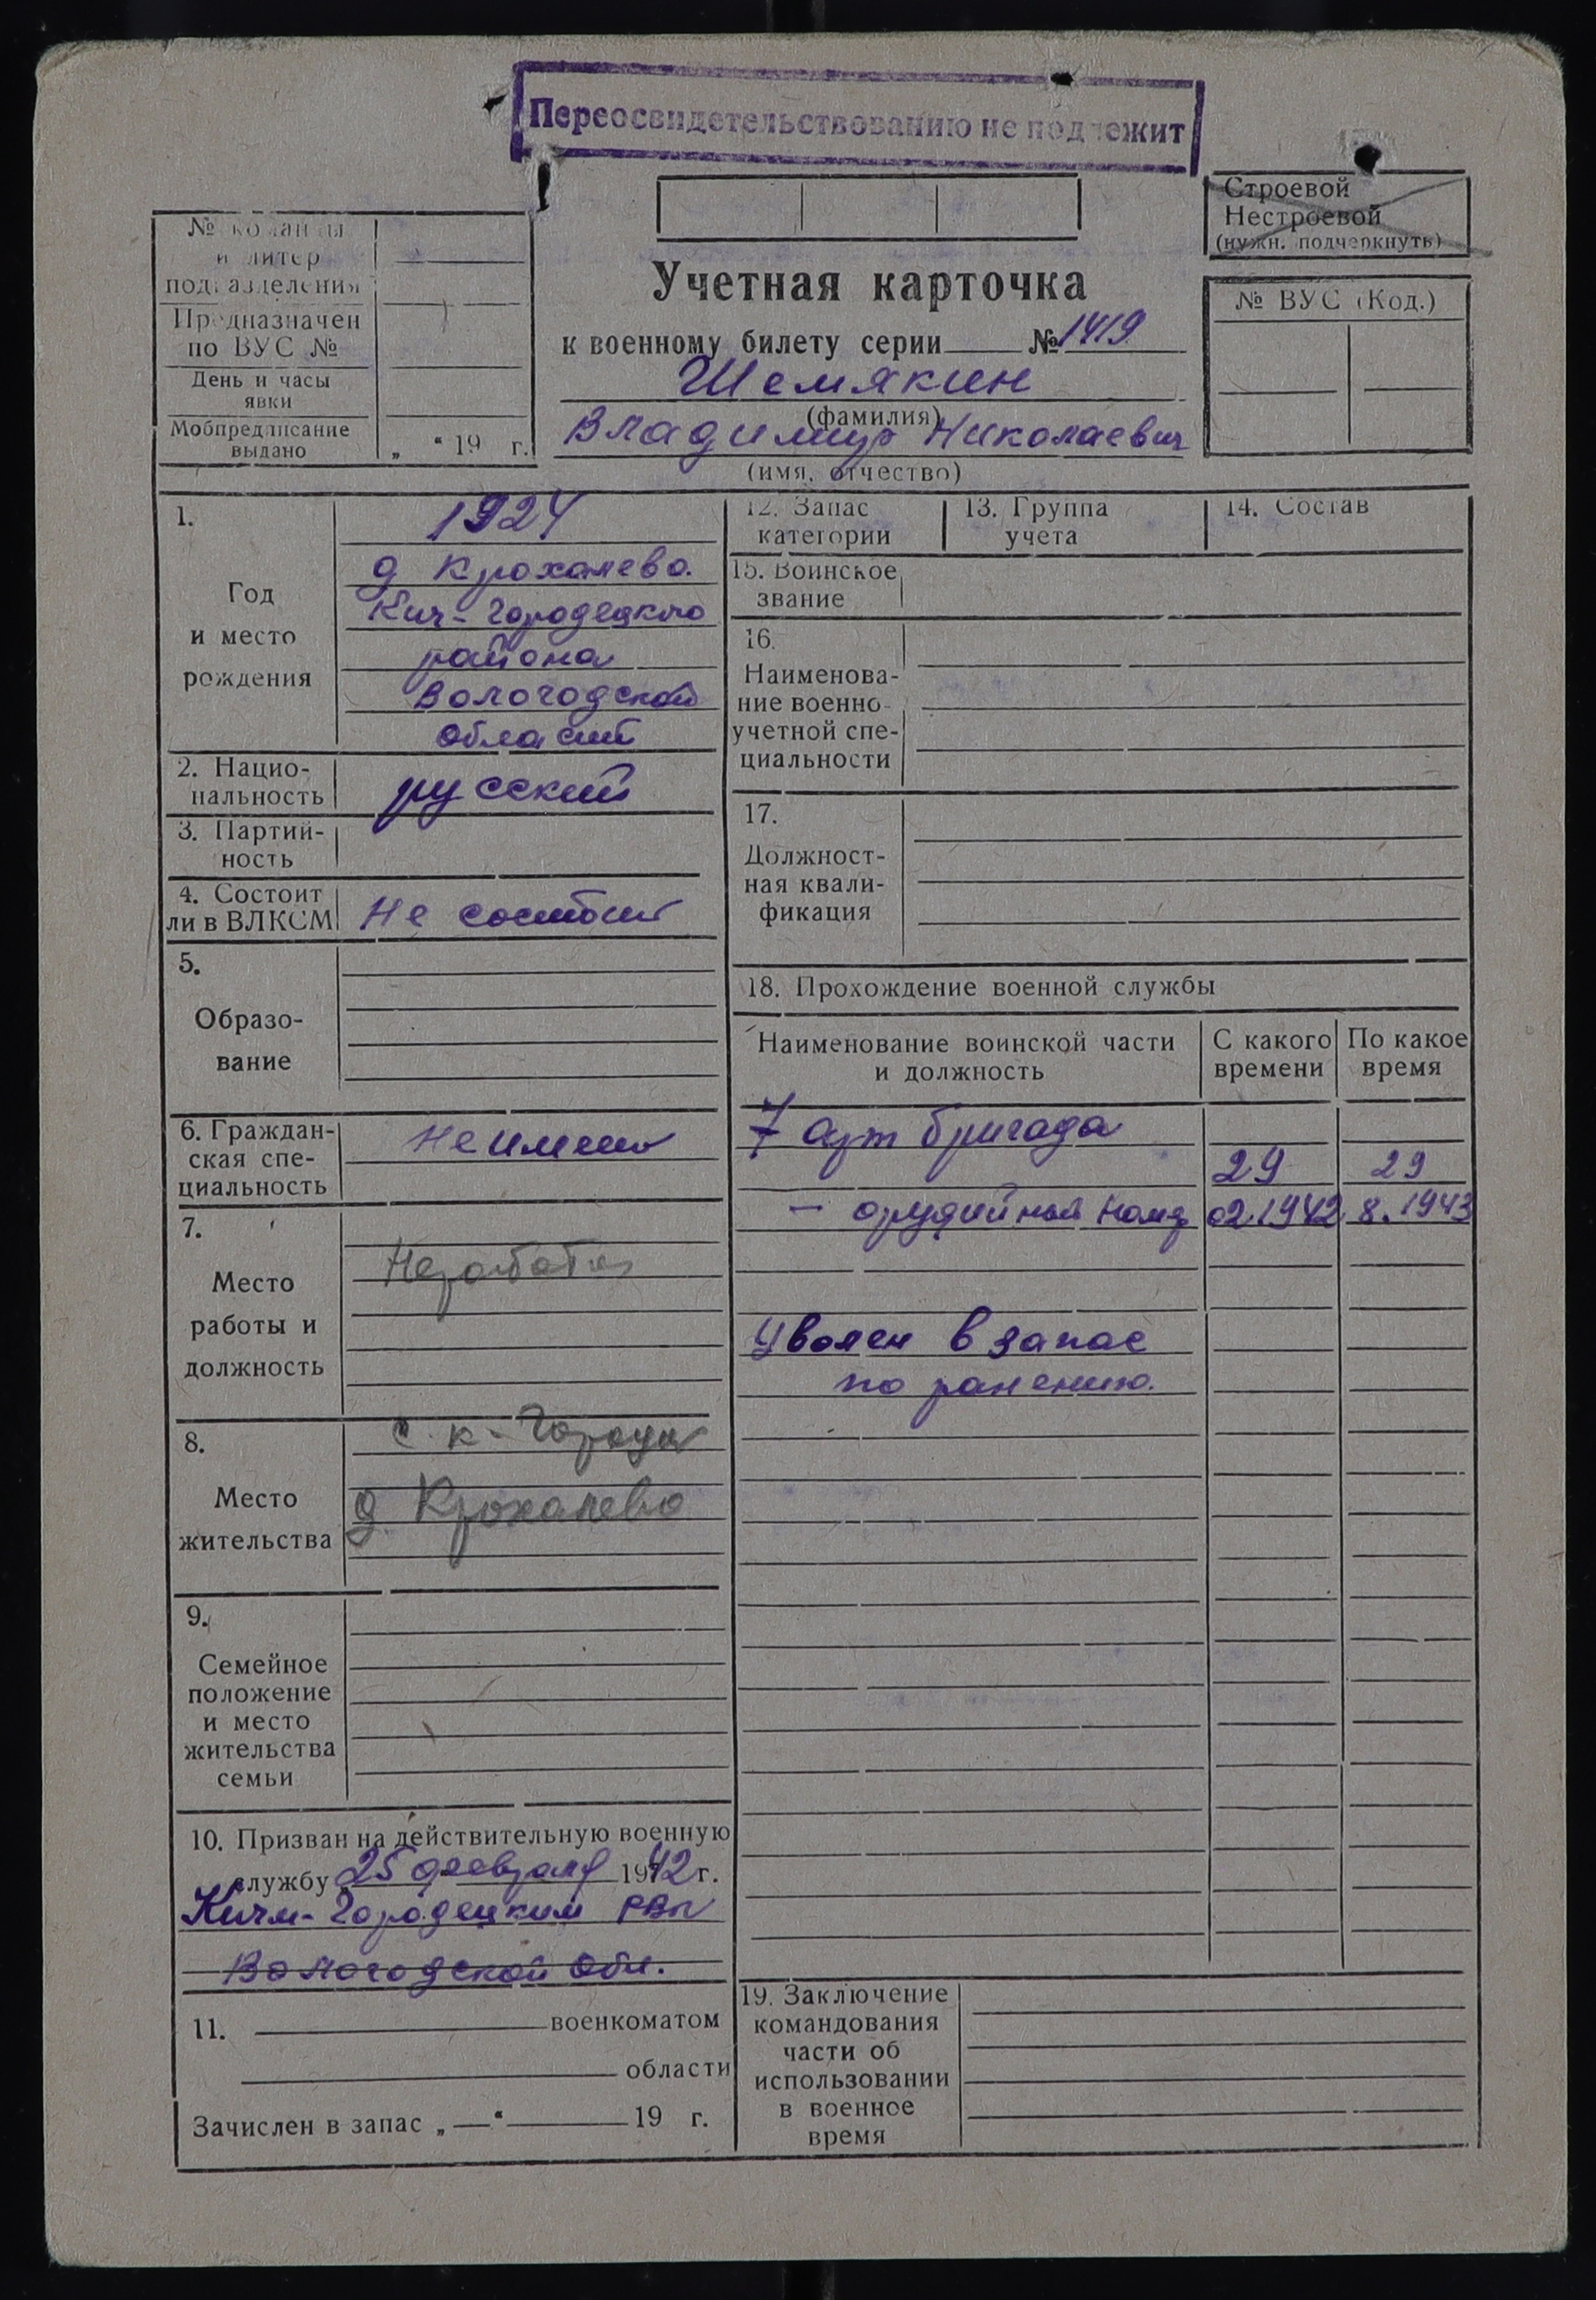 Переосвидетельствованию не подлежит
Строевой
Нестроевой
(нужн. подчеркнуть)
№ команды
и литер
подразделения
Предназначен
по ВУС №
День и часы
явки
Мобпредписание
выдано
„ “ 19 г.
Учетная карточка
к военному билету серии № 1419
Шемякин
(фамилия)
Владимир Николаевич
(имя, отчество)
№ ВУС (Код.)
1.
Год
и место
рождения
1924
д Крохалево.
Кич-Городецкого
района
Вологодской
области
2. Нацио-
нальность
русский
3. Партий-
ность
4. Состоит
ли в ВЛКСМ
Не состоит
5.
Образо-
вание
6. Граждан-
ская спе-
циальность
Не имеет
7.
Место
работы и
должность
8.
Место
жительства
с. К-Городок
д. Крохалево
9.
Семейное
положение
и место
жительства
семьи
10. Призван на действительную военную
службу 25 февраля 1942 г.
Кичм-Городецким РВК
Вологодской Обл.
11. военкоматом
области
Зачислен в запас „ — “ 19 г.
12. Запас
категории
13. Группа
учета
14. Состав
15. Воинское
звание
16.
Наименова-
ние военно-
учетной спе-
циальности
17.
Должност-
ная квали-
фикация
18. Прохождение военной службы
Наименование воинской части
и должность
С какого
времени
По какое
время
7 арт бригада
29 29
— орудийный номер 02.1942 8.1943
Уволен в запас
по ранению.
19. Заключение
командования
части об
использовании
в военное
время